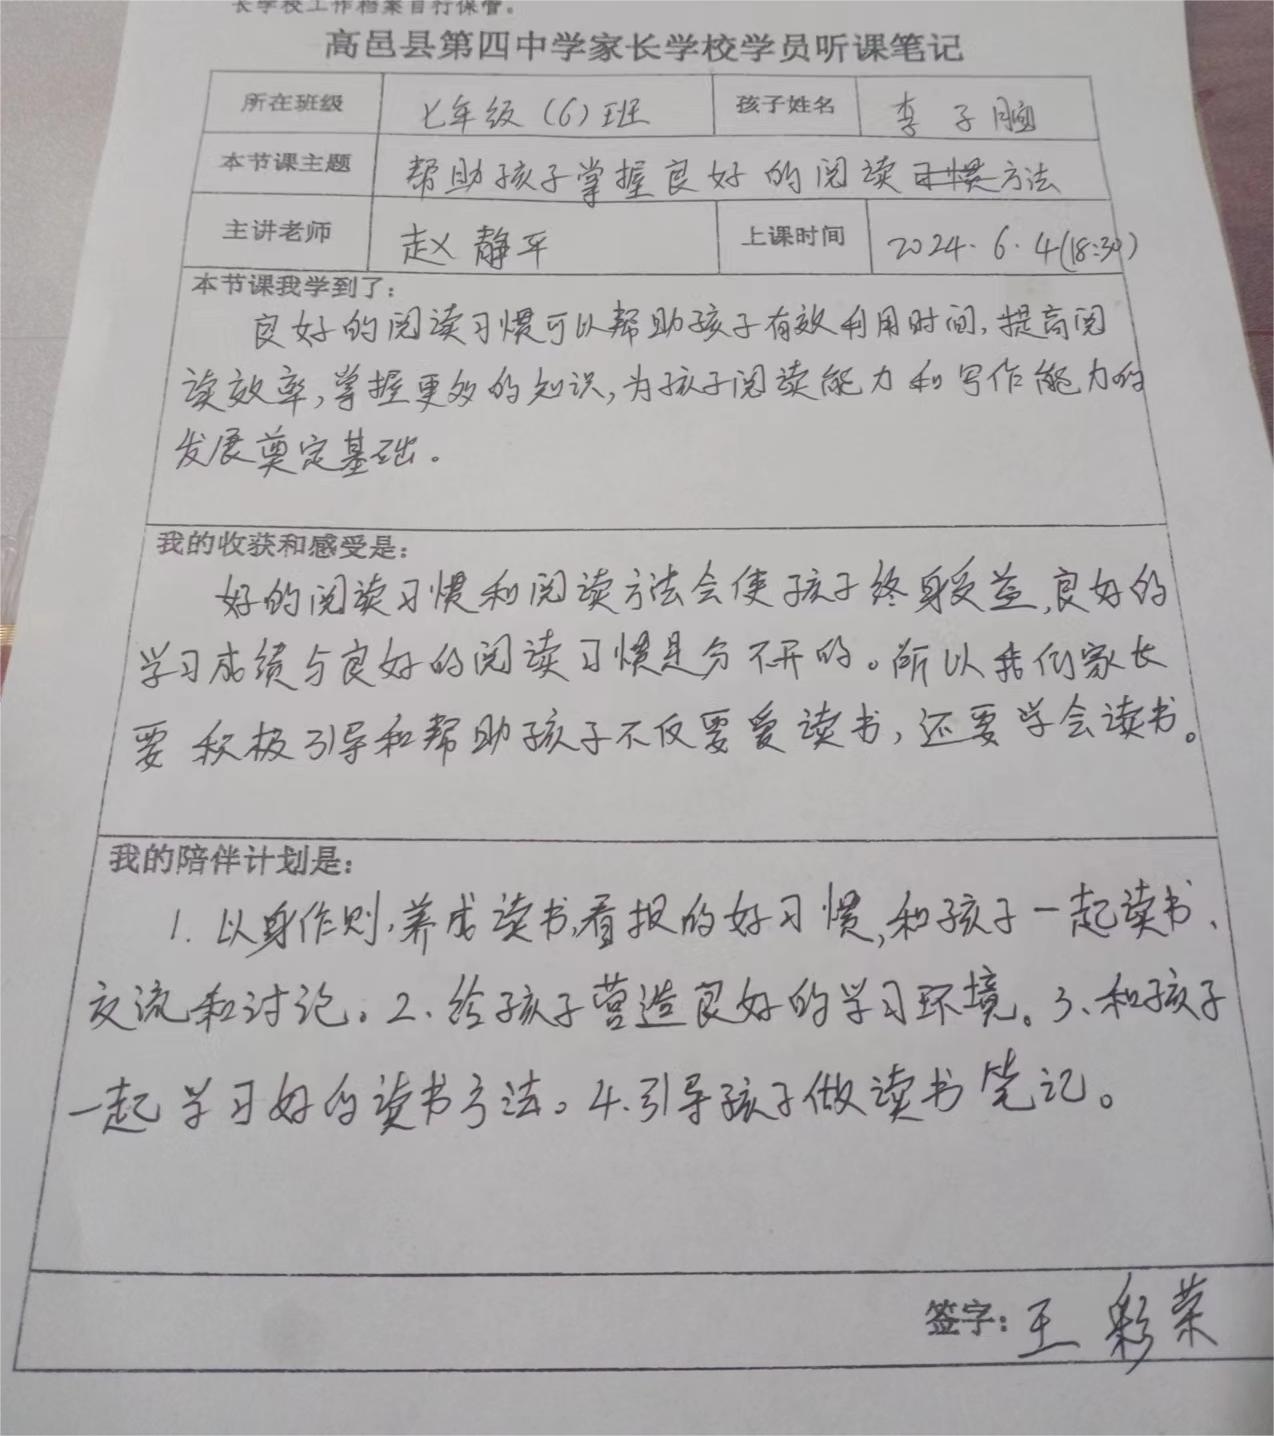 长学校工作档案自行保管。
高邑县第四中学家长学校学员听课笔记
所在班级 七年级（6）班 孩子姓名 李子腼
本节课主题 帮助孩子掌握良好的阅读习惯方法
主讲老师 赵静平 上课时间 2024.6.4(18:30)
本节课我学到了：
良好的阅读习惯可以帮助孩子有效利用时间,提高阅
读效率,掌握更多的知识,为孩子阅读能力和写作能力的
发展奠定基础。
我的收获和感受是：
好的阅读习惯和阅读方法会使孩子终身受益,良好的
学习成绩与良好的阅读习惯是分不开的。所以我们家长
要积极引导和帮助孩子不仅要爱读书,还要学会读书。
我的陪伴计划是：
1.以身作则,养成读书,看报的好习惯,和孩子一起读书、
交流和讨论。2、给孩子营造良好的学习环境。3、和孩子
一起学习好的读书方法。4.引导孩子做读书笔记。
签字：王彩荣